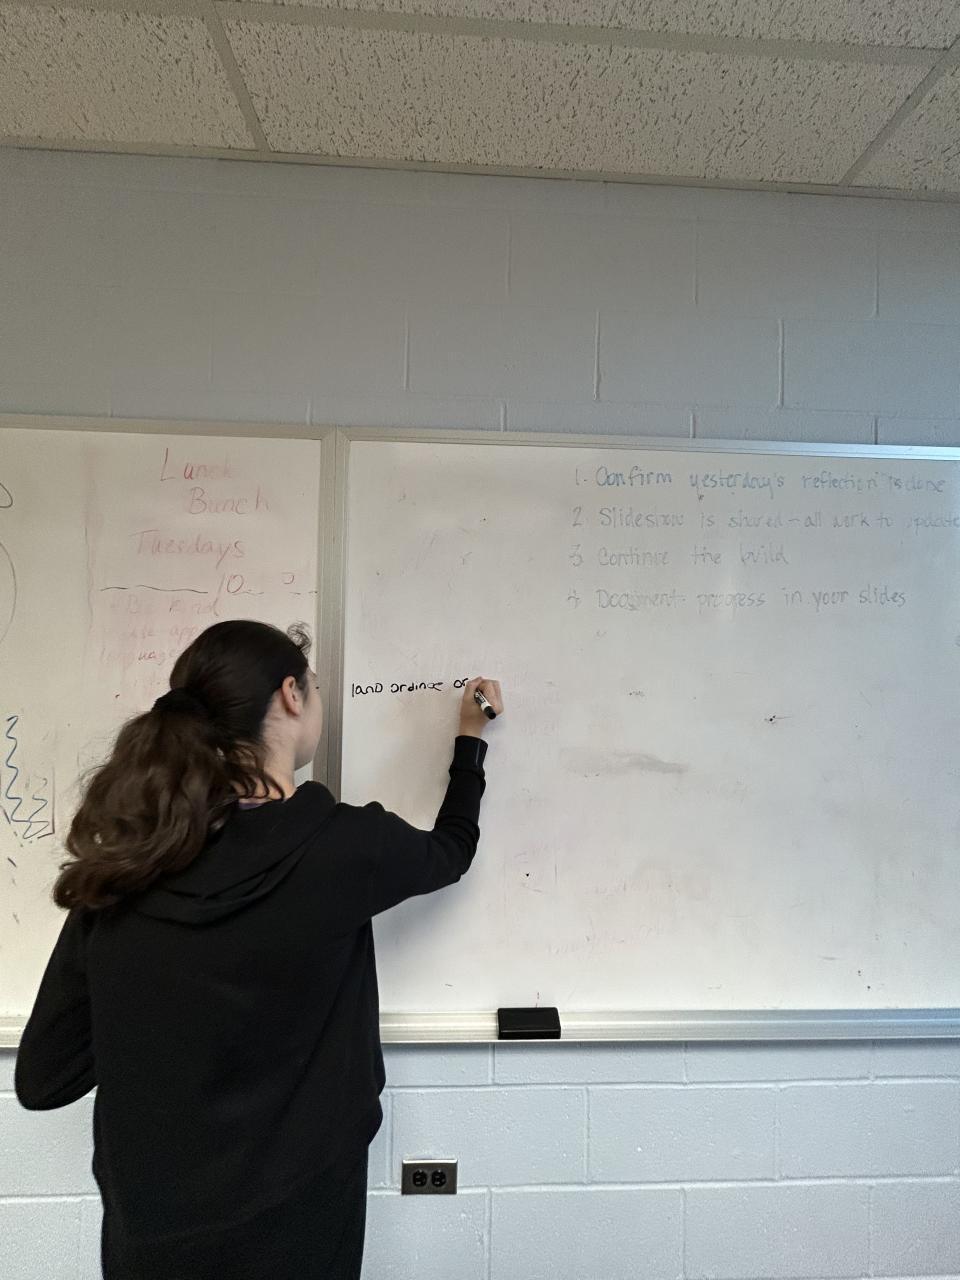 Lunch
Bunch
Tuesdays
Be kind
1. Confirm yesterday's reflection is done
2. Slideshow is shared - all work to update
3 Continue the build
4 Document progress in your slides
land ordince of